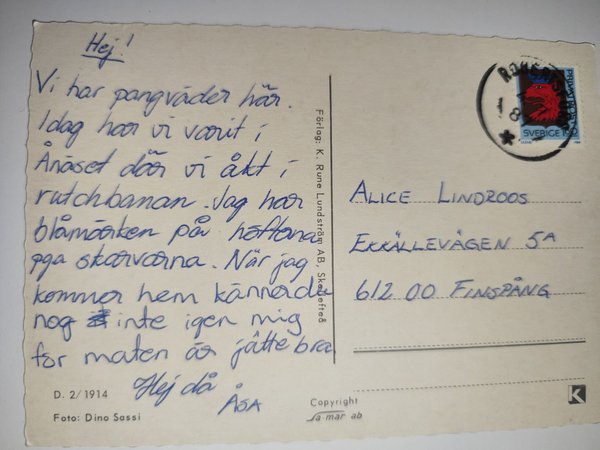 Hej!
Vi har pangväder här.
Idag har vi varit i
Ånäset där vi åkt i
rutchbanan. Jag har
blåmärken på höfterna
pga skarvarna. När jag
kommer hem känner du
nog inte igen mig
för maten är jättebra
Hej då
ÅSA
D. 2/1914
Foto: Dino Sassi
Förlag: K. Rune Lundström AB, Skellefteå
Copyright
Sa-mar ab
SVERIGE
ALICE LINDROOS
EKKÄLLEVÄGEN 5A
612 00 FINSPÅNG
K